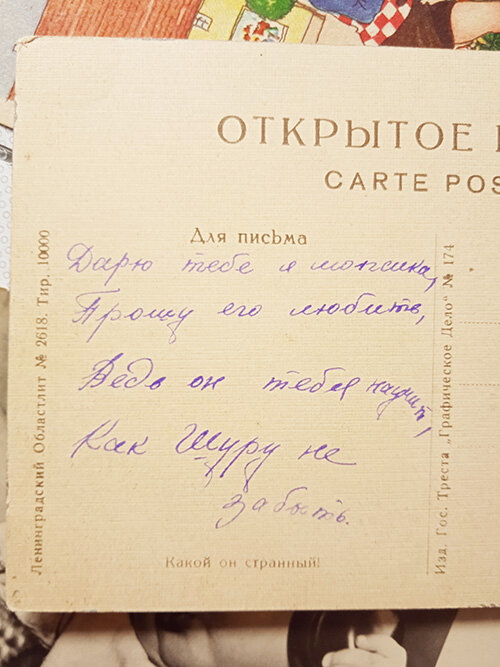 ОТКРЫТОЕ
CARTE POS
Для письма
Дарю тебе я мопсика,
Прошу его любить,
Ведь он тебя научит,
Как Шуру не
забыть.
Какой он странный!
Ленинградский Областлит № 2618. Тир. 10000
Изд. Гос. Треста „Графическое Дело“ № 174